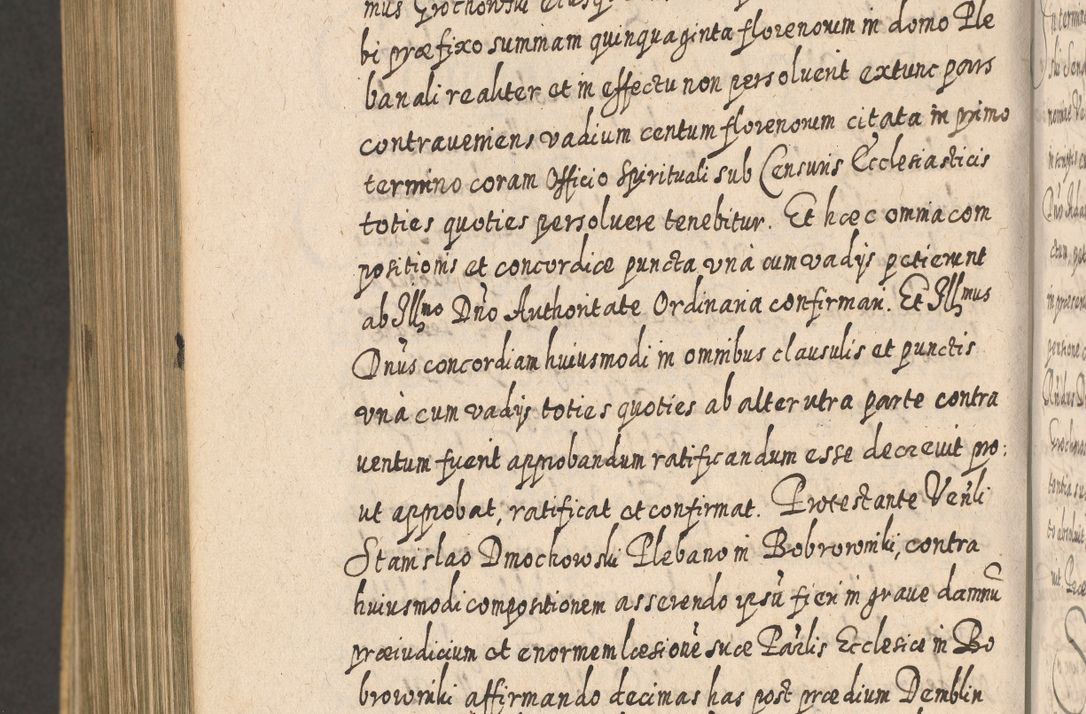 mus Grochowski
bi præfixo summam quinquaginta florenorum in domo Ple
banali realiter et in effectu non persoluerit extunc pars
contraueniens vadium centum florenorum citata in primo
termino coram Officio Spirituali sub Censuris Ecclesiasticis
toties quoties persoluere tenebitur. Et hæc omnia com
positionis et concordiæ puncta vnà cum vadijs petierunt
ab Illmo Dño Authoritate Ordinaria confirmari. Et Illmus
Dnüs concordiam huiusmodi in omnibus clausulis et punctis
vnà cum vadijs toties quoties ab alterutra parte contra
uentum fuerit approbandum ratificandum esse decreuit pro:
ut approbat, ratificat et confirmat. Protestante Venli
Stanislao Dmochowski Plebano in Bobrowniki, contra
huiusmodi compositionem asserendo ipsū fieri in graue damnū
præiudicium et enormem læsionē suæ Parlis Ecclesiæ in Bo
browniki affirmando decimas has post prædium Demblin